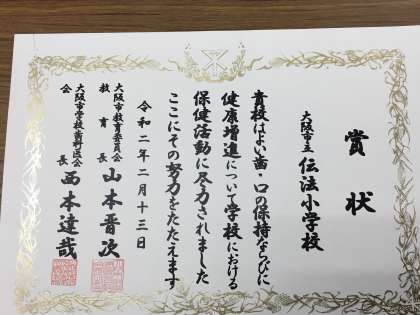 賞状
大阪市立 伝法小学校
貴校はよい歯・口の保持ならびに
健康増進について学校における
保健活動に尽力されました
ここにその努力をたたえます
令和二年二月十三日
大阪市教育委員会
教育長 山本晋次
大阪市学校歯科医会
会長 西本達哉